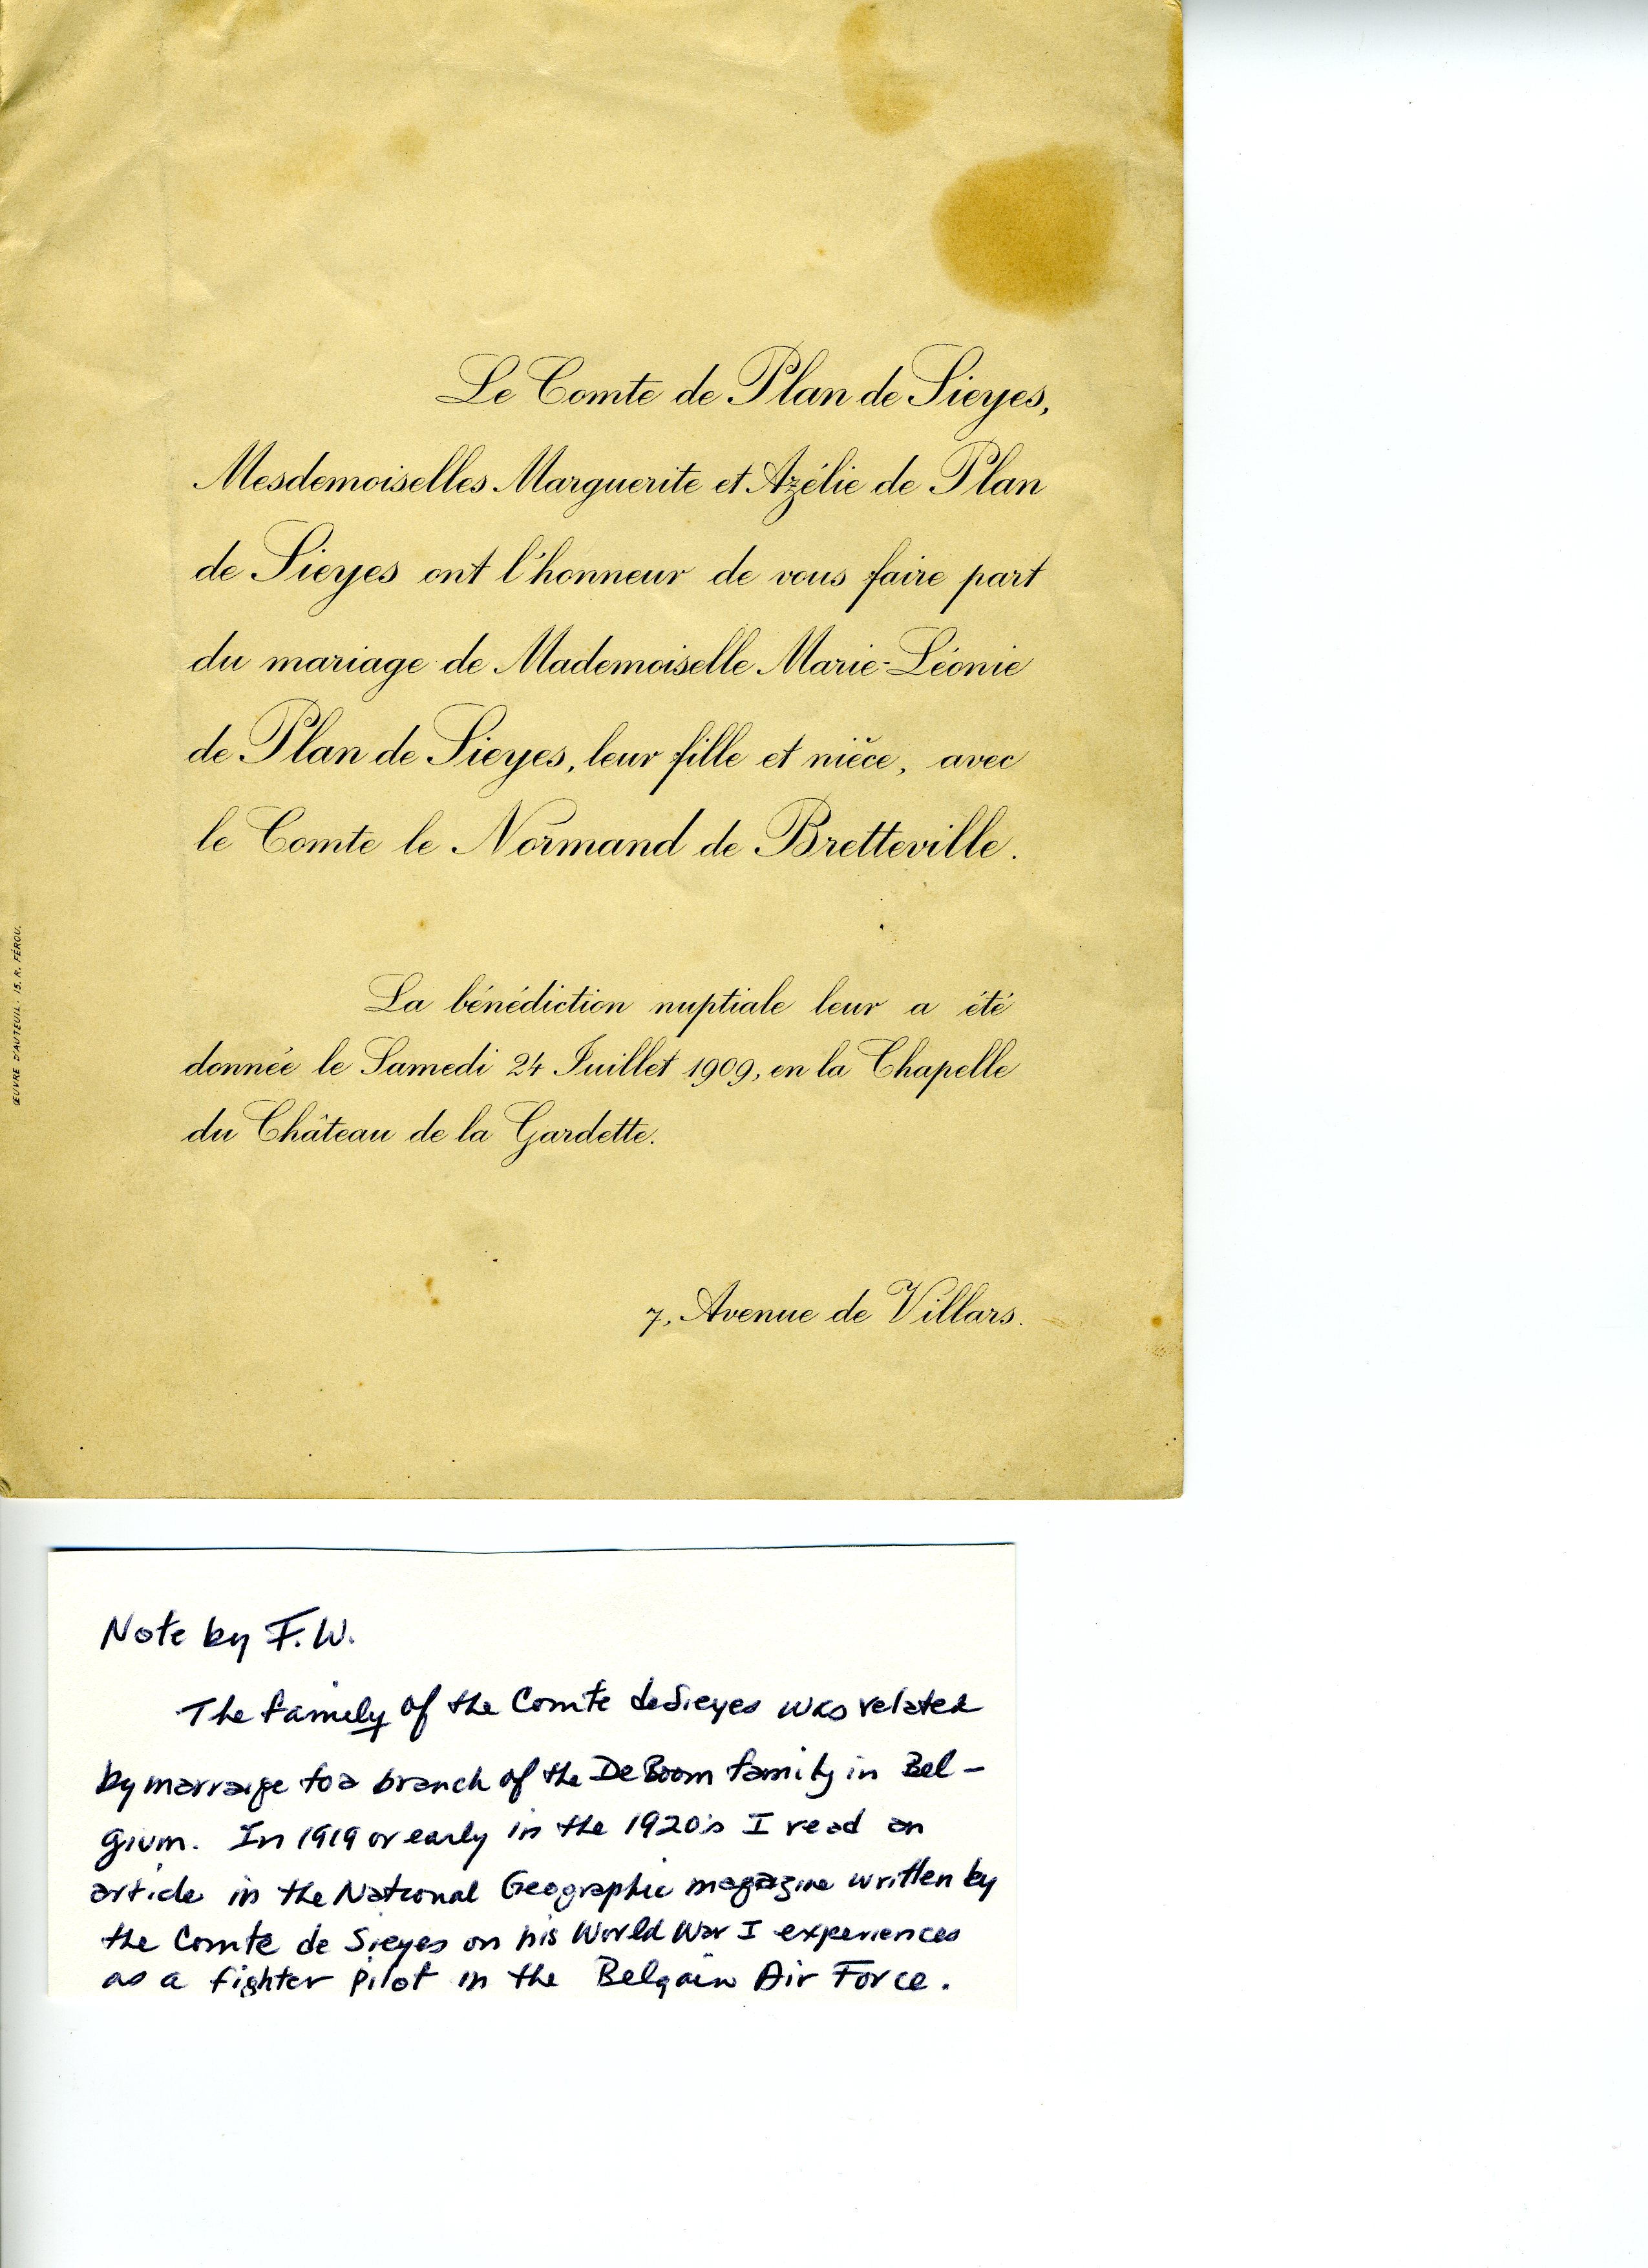 Le Comte de Plan de Sieyes,
Mesdemoiselles Marguerite et Azélie de Plan
de Sieyes ont l'honneur de vous faire part
du mariage de Mademoiselle Marie-Léonie
de Plan de Sieyes, leur fille et nièce, avec
le Comte le Normand de Bretteville.
La bénédiction nuptiale leur a été
donnée le Samedi 24 Juillet 1909, en la Chapelle
du Château de la Gardette.
7, Avenue de Villars.
ŒUVRE D'AUTEUIL. 15, R. FÉROU.
Note by F.W.
The family of the Comte de Sieyes was related
by marraige to a branch of the De Boom family in Bel-
gium. In 1919 or early in the 1920's I read an
article in the National Geographic magazine written by
the Comte de Sieyes on his World War I experiences
as a fighter pilot in the Belgain Air Force.